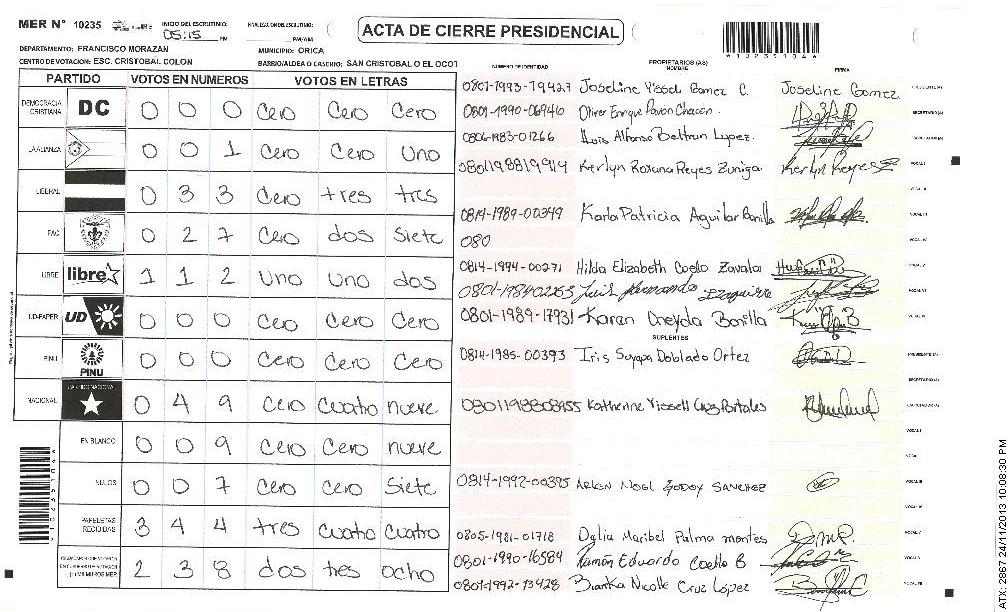 MER Nº 10235
INICIO DEL ESCRUTINIO: 05:15 PM
FINALIZACION DEL ESCRUTINIO: PM/AM
ACTA DE CIERRE PRESIDENCIAL
*10235104*
DEPARTAMENTO: FRANCISCO MORAZAN
MUNICIPIO: ORICA
CENTRO DE VOTACION: ESC. CRISTOBAL COLON
BARRIO/ALDEA O CASERIO: SAN CRISTOBAL O EL OCOT
PARTIDO VOTOS EN NUMEROS VOTOS EN LETRAS
DEMOCRACIA CRISTIANA DC 0 0 0 Cero Cero Cero
LA ALIANZA 0 0 1 Cero Cero Uno
LIBERAL 0 3 3 Cero tres tres
PAC 0 2 7 Cero dos Siete
LIBRE libre 1 1 2 Uno Uno dos
UD-FAPER UD 0 0 0 Cero Cero Cero
PINU PINU 0 0 0 Cero Cero Cero
NACIONAL PARTIDO NACIONAL 0 4 9 Cero Cuatro nueve
EN BLANCO 0 0 9 Cero Cero nueve
NULOS 0 0 7 Cero Cero Siete
PAPELETAS RECIBIDAS 3 4 4 tres Cuatro Cuatro
2 3 8 dos tres ocho
NUMERO DE IDENTIDAD PROPIETARIOS (AS) NOMBRE FIRMA
0801-1993-19427 Joseline Yissel Gomez C. Joseline Gomez PRESIDENTE (A)
0801-1990-06946 Oliver Enrique Pavon Chacon SECRETARIO (A)
0806-1983-01266 Luis Alfonso Beltran Lopez. ESCRUTADOR (A)
0801198819919 Kerlyn Roxana Reyes Zuniga Kerlyn Reyes VOCAL I
0814-1989-00349 Karla Patricia Aguilar Bonilla
080
0814-1994-00271 Hilda Elizabeth Coello Zavala
0801-198402263 Luis Hernando Izaguirre
0801-1989-17931 Karen Oneyda Bonilla
SUPLENTES
0814-1985-00393 Iris Suyapa Doblado Ortez PRESIDENTE (A)
SECRETARIO (A)
0801199308955 Katherine Yissell Cruz Portales ESCRUTADOR (A)
0814-1992-00395 Arlen Noel Godoy Sanchez
0805-1981-01718 Oglia Maribel Palma montes
0801-1990-16584 Ramón Eduardo Coello B
0801-1992-13428 Bianka Nicolle Cruz López
*10235104*
ATX: 2867 24/11/2013 10:08:30 PM